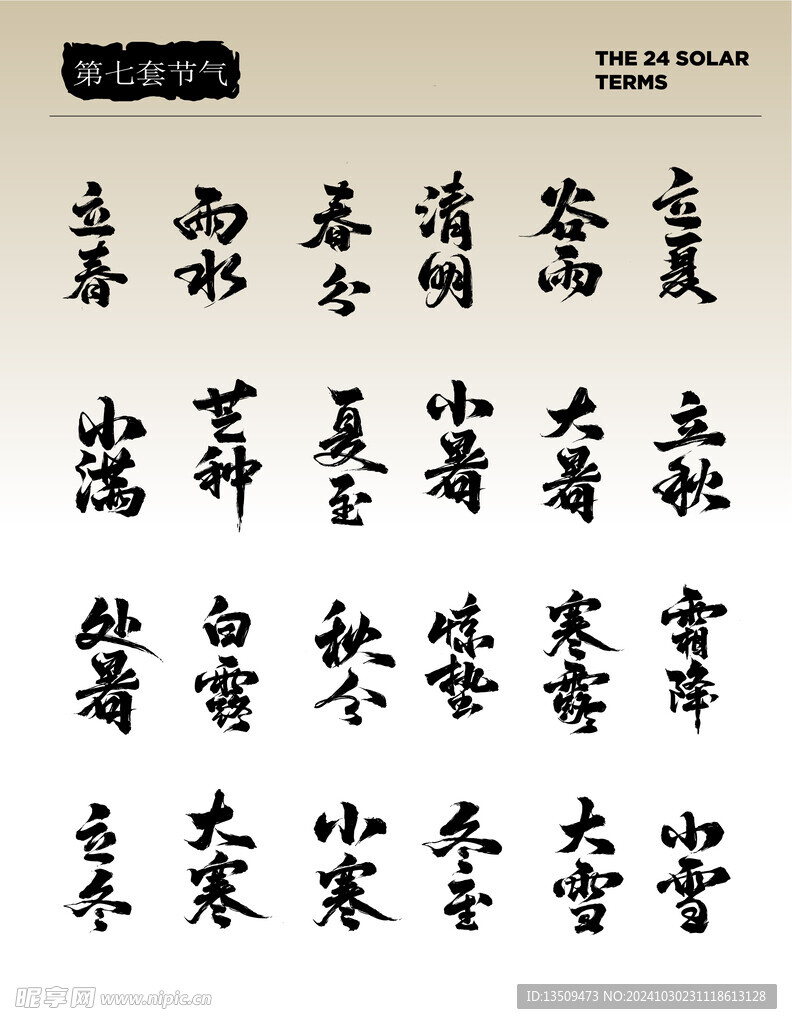 第七套节气
THE 24 SOLAR
TERMS
立春
雨水
春分
清明
谷雨
立夏
小满
芒种
夏至
小暑
大暑
立秋
处暑
白露
秋分
惊蛰
寒露
霜降
立冬
大寒
小寒
冬至
大雪
小雪
昵享网 www.nipic.cn
ID:13509473 NO:20241030231118613128